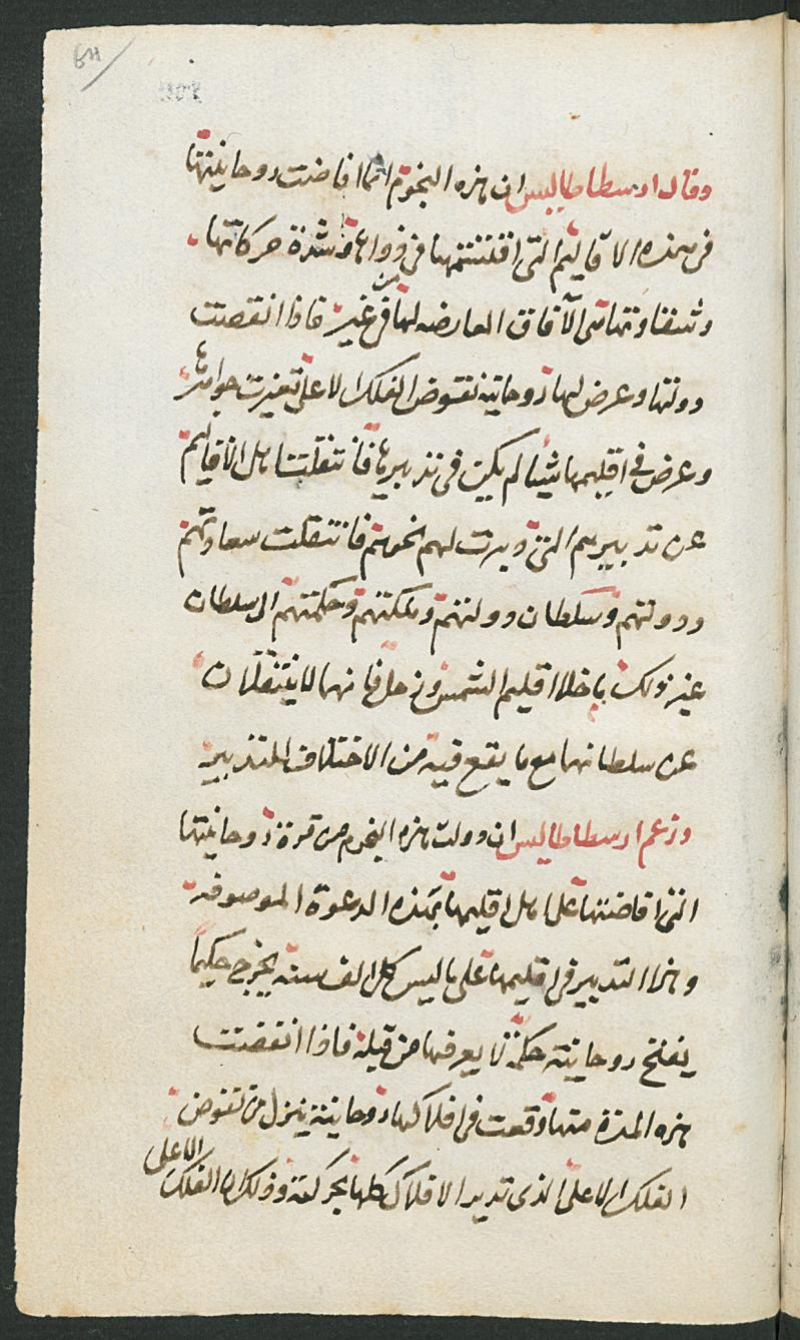 وقال ارسطاطاليس ان هزه النجوم انما افاضت روحانيتها
فى هذه الاقاليم التى اقتسمتها فى دورانها وشدة حركاتها
وشقاوتها من الآفاق العارضه لها فى غير فاذا انقصت
دولتها وعرض لها روحانية نقوض الفلك الاعلى تغيرت جواهرها
وعرض فى اقليمها شيئا لم يكن فى تدبيرها فانتقلت اهل الاقاليم
عن تدبيرهم التى دبرت لهم نجومهم فانتقلت سعادتهم
ودولتهم وسلطان دولتهم وملكتهم وحكمتهم الى سلطان
غير ذلك ما خلا اقليم الشمس وزحل فانهما لا ينتقلان
عن سلطانهما مع ما يقع فيه من الاختلاف المتدبير
وزعم ارسطاطاليس ان دولت هزه النجوم من قوة روحانيتها
التى افاضتها على اهل اقليمها بهذه الدعوة الموصوفه
وهزا التدبير فى اقليمها على ما ليس كل الف سنه يخرج حكيما
يفتح روحانيته حكمة لا يعرفها من قبله فاذا انقضت
هزه المدة منها وقعت فى افلاكها روحانية ينزل من نقوض
الفلك الاعلى الذى تدير الافلاك كلها بحركته وذلك ان الفلك الاعلى